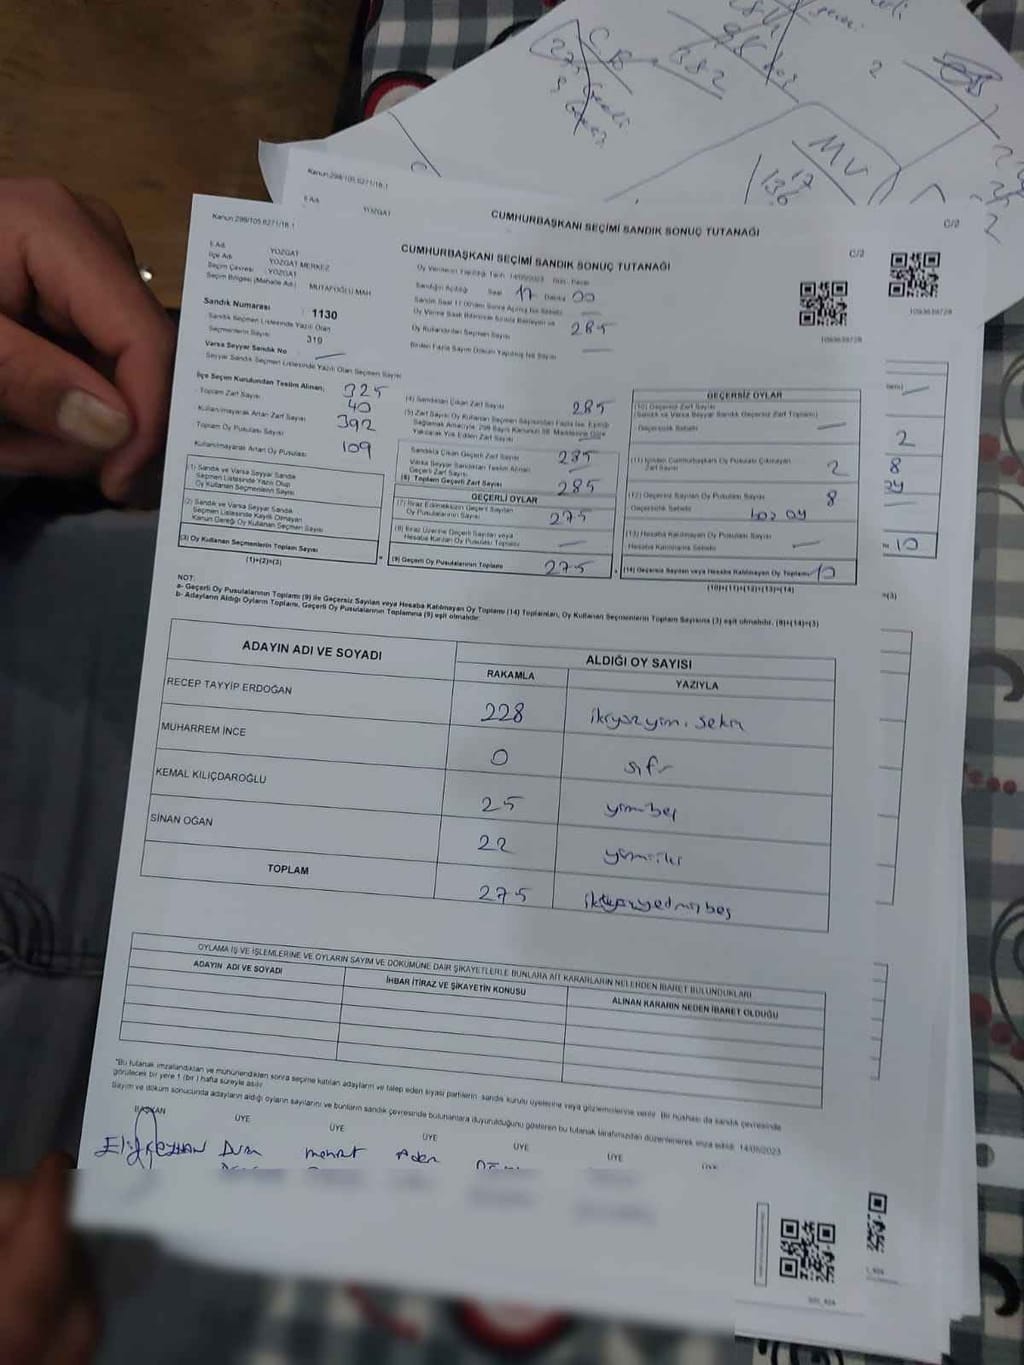 Kanun 298/105.6271/16.1
İl Adı
YOZGAT
CUMHURBAŞKANI SEÇİMİ SANDIK SONUÇ TUTANAĞI
C/2
CB
275
MV
2
Kanun 298/105.6271/16.1
CUMHURBAŞKANI SEÇİMİ SANDIK SONUÇ TUTANAĞI
C/2
İl Adı YOZGAT
İlçe Adı YOZGAT MERKEZ
Seçim Çevresi YOZGAT
Seçim Bölgesi (Mahalle Adı) MUTAFOĞLU MAH
Sandık Numarası : 1130
Sandık Seçmen Listesinde Yazılı Olan
Seçmenlerin Sayısı 319
Varsa Seyyar Sandık No
Seyyar Sandık Seçmen Listesinde Yazılı Olan Seçmen Sayısı
Sandığın Açıldığı Saat 17 Dakika 00
Oy Kullandırılan Seçmen Sayısı 285
İlçe Seçim Kurulundan Teslim Alınan;
Toplam Zarf Sayısı 325
Kullanılmayarak Artan Zarf Sayısı 40
Toplam Oy Pusulası Sayısı 392
Kullanılmayarak Artan Oy Pusulası 109
(1) Sandık ve Varsa Seyyar Sandık
Seçmen Listesinde Yazılı Olup
Oy Kullanan Seçmenlerin Sayısı
(2) Sandık ve Varsa Seyyar Sandık
Seçmen Listesinde Kayıtlı Olmayan
Kanun Gereği Oy Kullanan Seçmen Sayısı
(3) Oy Kullanan Seçmenlerin Toplam Sayısı
(1)+(2)=(3)
(4) Sandıktan Çıkan Zarf Sayısı 285
(5) Zarf Sayısı Oy Kullanan Seçmen Sayısından Fazla İse, Eşitliği
Sağlamak Amacıyla; 298 Sayılı Kanunun 98. Maddesine Göre
Yakılarak Yok Edilen Zarf Sayısı
Sandıkta Çıkan Geçerli Zarf Sayısı 285
Varsa Seyyar Sandıktan Teslim Alınan
Geçerli Zarf Sayısı
(6) Toplam Geçerli Zarf Sayısı 285
GEÇERLİ OYLAR
(7) İtiraz Edilmeksizin Geçerli Sayılan
Oy Pusulalarının Sayısı 275
(8) İtiraz Üzerine Geçerli Sayılan veya
Hesaba Katılan Oy Pusulası Toplamı
(9) Geçerli Oy Pusulalarının Toplamı 275
GEÇERSİZ OYLAR
(10) Geçersiz Zarf Sayısı
(Sandık ve Varsa Seyyar Sandık Geçersiz Zarf Toplamı)
Geçersizlik Sebebi
(11) İçinden Cumhurbaşkanı Oy Pusulası Çıkmayan
Zarf Sayısı 2
(12) Geçersiz Sayılan Oy Pusulası Sayısı 8
Geçersizlik Sebebi boz oy
(13) Hesaba Katılmayan Oy Pusulası Sayısı
Hesaba Katılmama Sebebi
(14) Geçersiz Sayılan veya Hesaba Katılmayan Oy Toplamı 10
(10)+(11)+(12)+(13)=(14)
2
8
10
NOT:
a- Geçerli Oy Pusulalarının Toplamı (9) ile Geçersiz Sayılan veya Hesaba Katılmayan Oy Toplamı (14) Toplamları, Oy Kullanan Seçmenlerin Toplam Sayısına (3) eşit olmalıdır. (9)+(14)=(3)
b- Adayların Aldığı Oyların Toplamı, Geçerli Oy Pusulalarının Toplamına (9) eşit olmalıdır.
ADAYIN ADI VE SOYADI
ALDIĞI OY SAYISI
RAKAMLA YAZIYLA
RECEP TAYYİP ERDOĞAN 228 ikiyüzyirmi sekiz
MUHARREM İNCE 0 sıfır
KEMAL KILIÇDAROĞLU 25 yirmibeş
SİNAN OĞAN 22 yirmiiki
TOPLAM 275 ikiyüzyetmişbeş
OYLAMA İŞ VE İŞLEMLERİNE VE OYLARIN SAYIM VE DÖKÜMÜNE DAİR ŞİKAYETLERLE BUNLARA AİT KARARLARIN NELERDEN İBARET BULUNDUKLARI
ADAYIN ADI VE SOYADI İHBAR İTİRAZ VE ŞİKAYETİN KONUSU ALINAN KARARIN NEDEN İBARET OLDUĞU
*Bu tutanak imzalandıktan ve mühürlendikten sonra seçime katılan adayların ve talep eden siyasi partilerin sandık kurulu üyelerine veya gözlemcilerine verilir. Bir nüshası da sandık çevresinde
görülecek bir yere 1 (bir) hafta süreyle asılır.
Sayım ve döküm sonucunda adayların aldığı oyların sayılarını ve bunların sandık çevresinde bulunanlara duyurulduğunu gösteren bu tutanak tarafımızdan düzenlenerek imza edildi. 14/05/2023
BAŞKAN ÜYE ÜYE ÜYE ÜYE ÜYE ÜYE